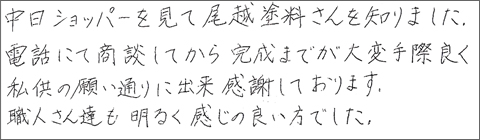 中日ショッパーを見て尾越塗料さんを知りました。
電話にて商談してから完成までが大変手際良く
私供の願い通りに出来感謝しております。
職人さん達も明るく感じの良い方でした。